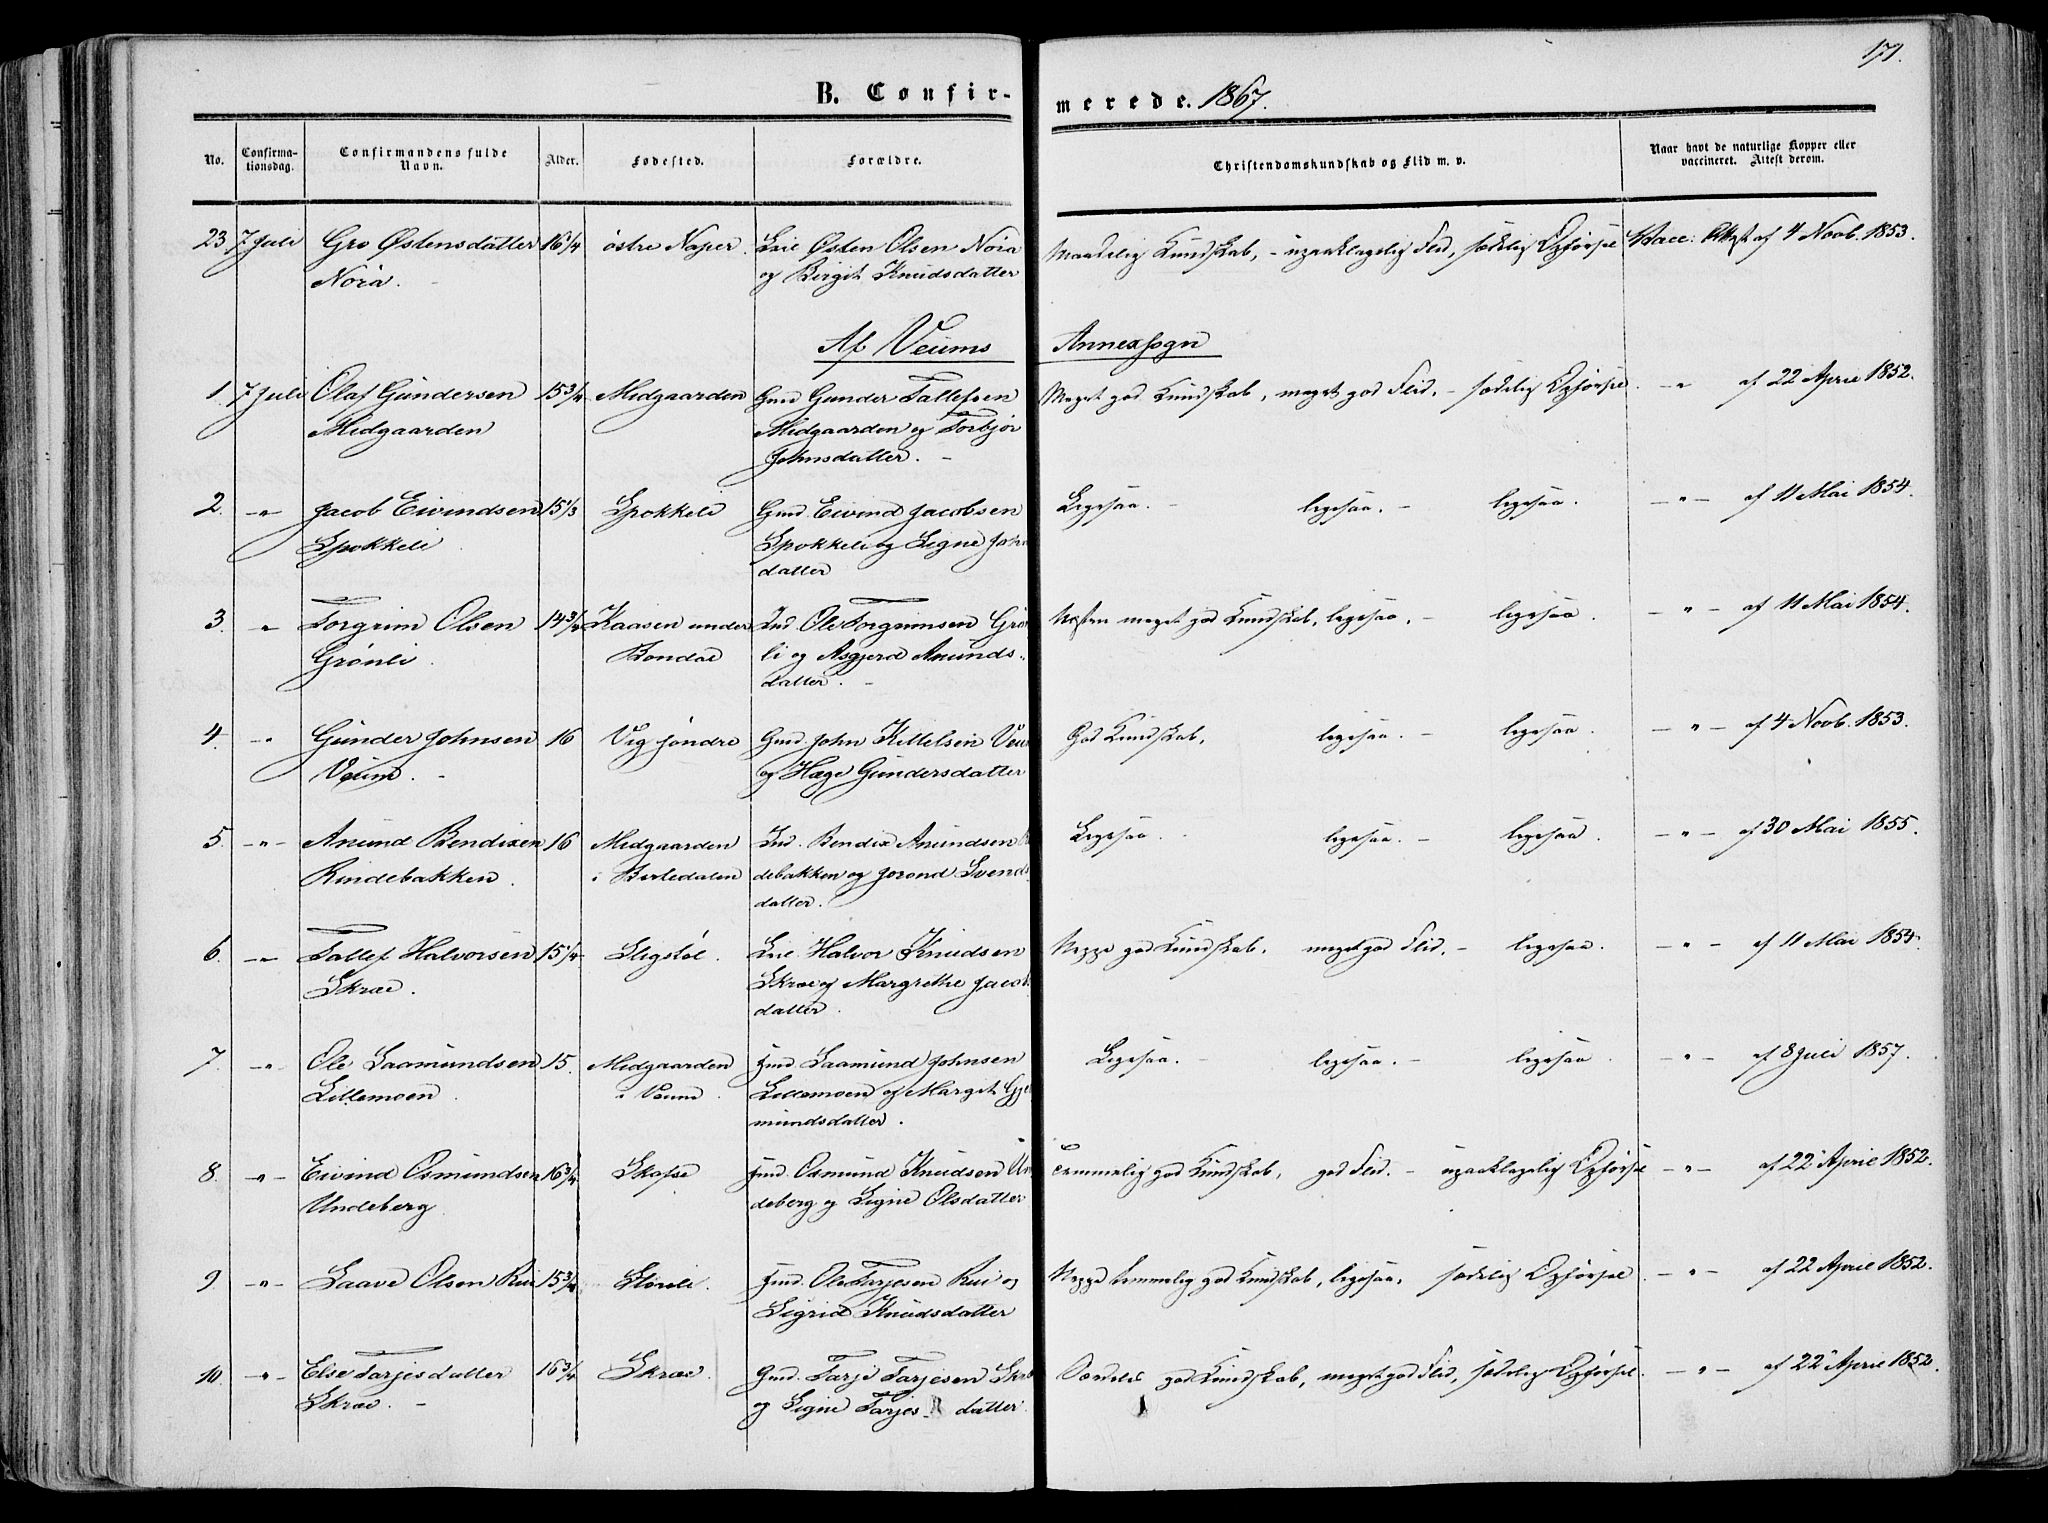 171.
B. Confirmerede. 1867.
No. Confirmationsdag. Confirmandens fulde Navn. Alder. Fødested. Forældre. Christendomskundskab og Flid m. v. Naar havt de naturlige Kopper eller vaccineret. Attest derom.
23 7 Juli Gro Østensdatter 16 1/4 østre Naper. Østen Olsen Nora Maadelig Kundskab, - upaaklagelig Flid, sædelig Opførsel Vacc: Attest af 4 Novb. 1853.
Nora. og Birgit Knudsdatter
Af Veums Annexsogn
1. 7 Juli Olaf Gundersen 15 3/4 Midgaarden Gmd Gunder Tallefsen Meget god Kundskab, meget god Flid, - sædelig Opførsel. -"- af 22 April 1852.
Midgaarden Midgaarden og Torbjør
Johnsdatter. -
2. -"- Jacob Eivindsen 15 1/3 Spokkeli Gmd. Eivind Jacobsen Ligesaa. - ligesaa. - ligesaa. -"- af 11 Mai 1854.
Spokkeli Spokkeli og Signe
datter
3. " Torgrim Olsen 14 3/4 Kaasen under Ind. Ole Torgrimsen Grøn Næsten meget god Kundskab, ligesaa. - ligesaa. -"- af 11 Mai 1854.
Grønli. Bondal li og Asgjerd Anunds-
datter. -
4. -"- Gunder Johnsen 16 Vig søndre Gmd. John Kittelsen Veum God Kundskab, ligesaa. - ligesaa. -"- af 4 Novb. 1853.
Veum. - og Hæge Gundersdatter
5. -"- Anund Bendixen 16 Midgaarden Ind. Bendix Anundsen Ligesaa. ligesaa. - ligesaa. -"- af 30 Mai 1855.
Rindebakken. i Berledalen debakken og Jorond Svends
datter.
6. -"- Tallef Halvorsen 15 1/4 Sligstøl. Halvor Knudsen Neppe god Kundskab. meget god Flid. - ligesaa. -"- af 11 Mai 1854.
Skræe. Skræe og Margrethe Jacobs
datter.
7 -"- Ole Saamundsen 15. Midgaarden Gmd. Saamund Johnsen Ligesaa. - ligesaa. - ligesaa. -"- af 8 Juli 1857.
Lillemoen. i Veum. Lillemoen og Margit
mundsdatter.
8. -"- Eivind Osmundsen 16 3/4 Skafse Gmd. Osmund Knudsen Un Temmelig god Kundskab, god Flid. - upaaklagelig Opførsel -"- af 22 April 1852.
Undeberg. deberg og Signe Olsdatter
9. -"- Saave Olsen Rui 15 3/4 Gmd. Ole Tarjesen Rui og Neppe temmelig god Kundskab, ligesaa. sædelig Opførsel. -"- af 22 April 1852.
Sigrid Knudsdatter
10. -"- Else Tarjesdatter 16 3/4 Skræe. Gmd. Tarje Tarjesen Skræ Særdeles god Kundskab, meget god Flid, sædelig Opførsel. -"- af 22 April 1852.
Skræe. - og Signe Tarjes datter.